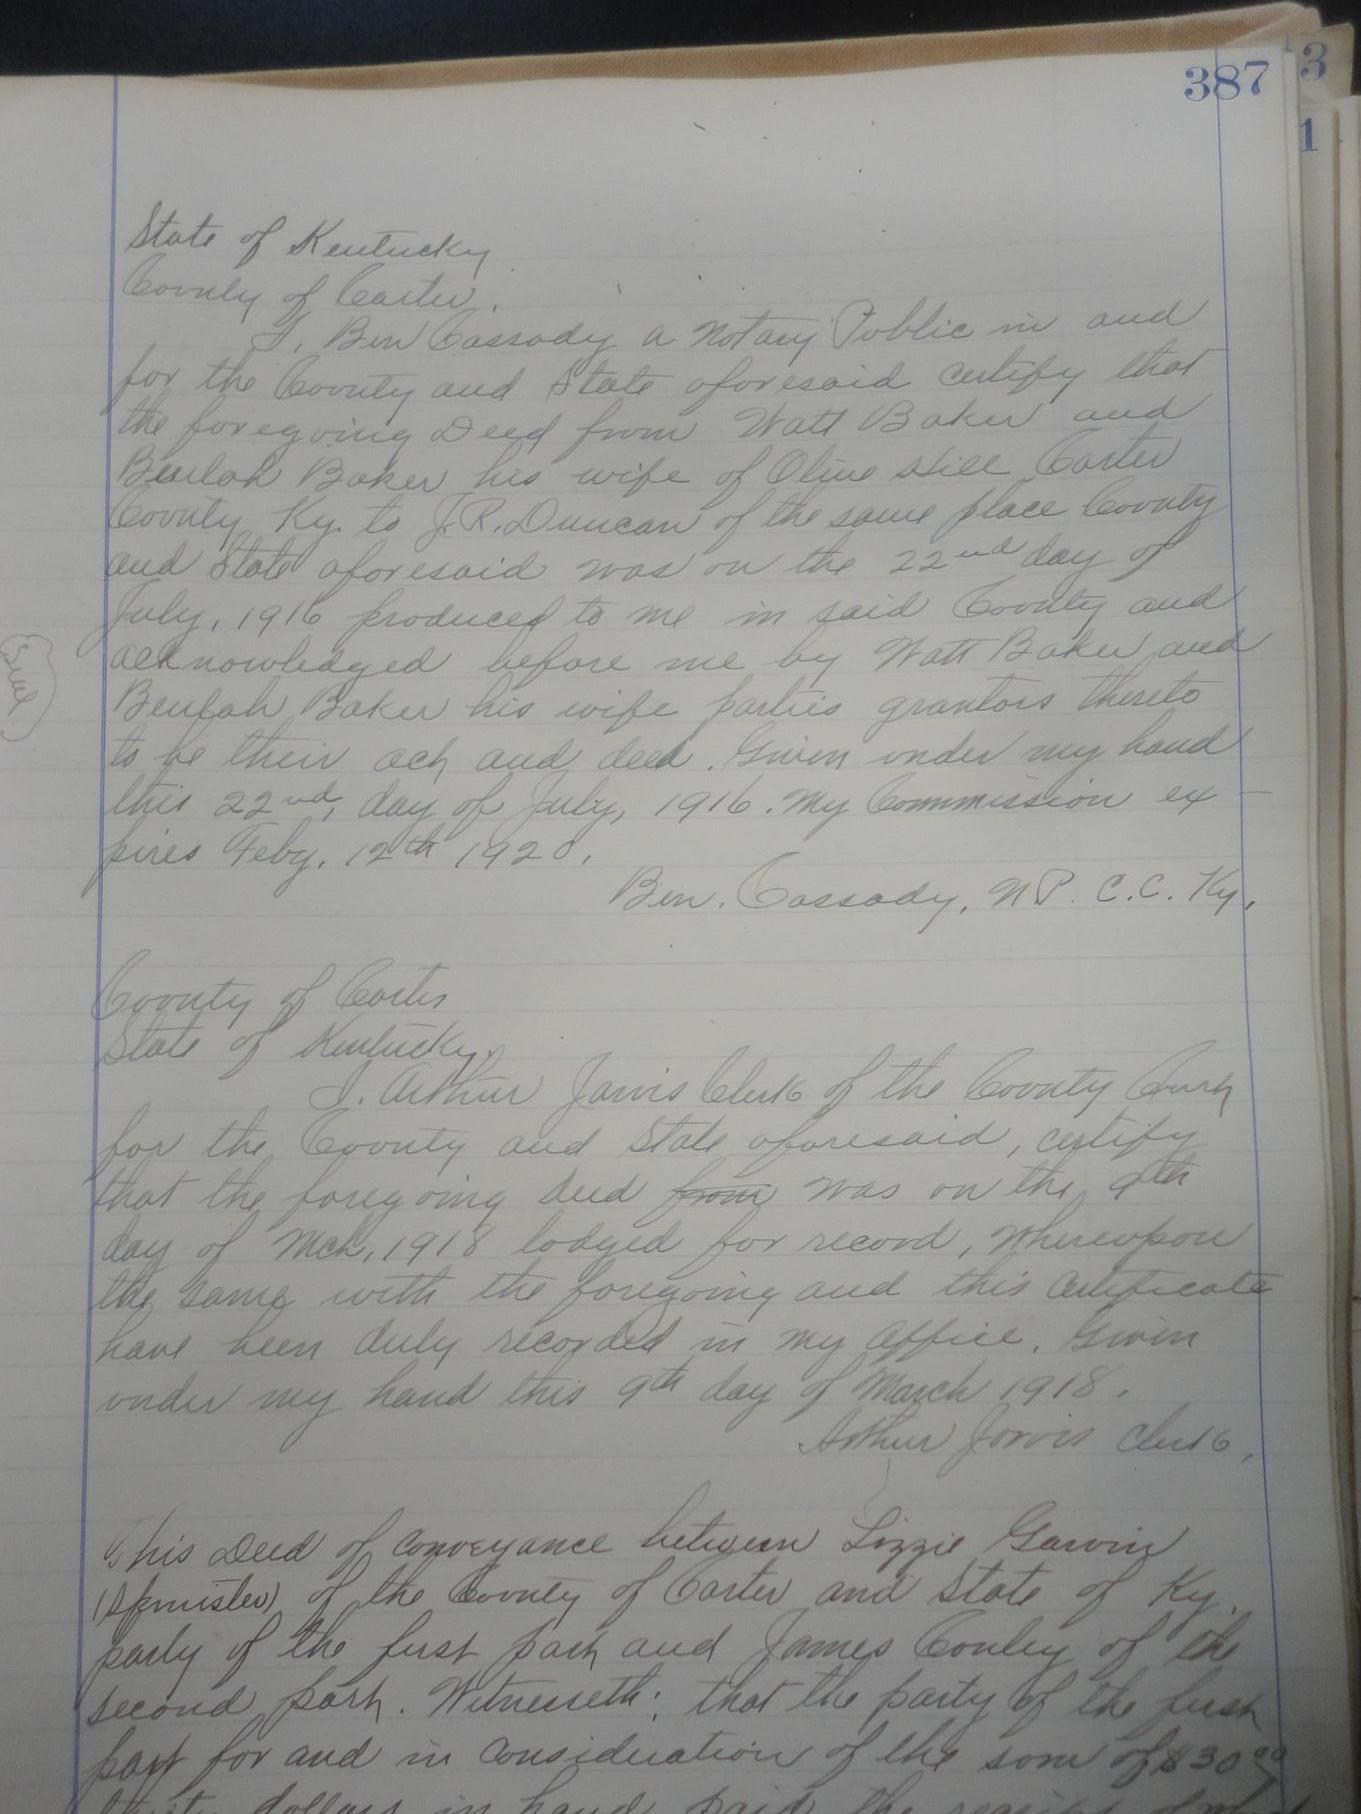 387
3
1
State of Kentucky
County of Carter.
I, Ben Cassady a Notary Public in and
for the County and State aforesaid certify that
the foregoing Deed from Watt Baker and
Beulah Baker his wife of Olive Hill Carter
County Ky. to J.R. Duncan of the same place County
and State aforesaid was on the 22nd day of
July, 1916 produced to me in said County and
acknowledged before me by Watt Baker and
(Seal)
Beulah Baker his wife parties grantors thereto
to be their act and deed. Given under my hand
this 22nd, day of July, 1916. My Commission ex-
pires Feby. 12th 1920.
Ben. Cassady, N P. C.C. Ky.
County of Carter
State of Kentucky.
I. Arthur Jarvis Clerk of the County Court
for the County and State aforesaid, certify
that the foregoing deed from was on the 9th
day of Mch, 1918 lodged for record, Whereupon
the same with the foregoing and this certificate
have been duly recorded in my office. Given
under my hand this 9th day of March 1918.
Arthur Jarvis Clerk,
This Deed of conveyance between Lizzie Garvin
(Spinister) of the County of Carter and State of Ky.
party of the first part and James Conley of the
second part. Witnesseth; that the party of the first
part for and in consideration of the som of $30 00
dollars in hand paid the